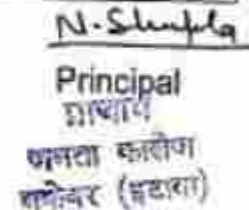 N. Shukla
Principal
प्राचार्य
जनता कालेज
(इटावा)